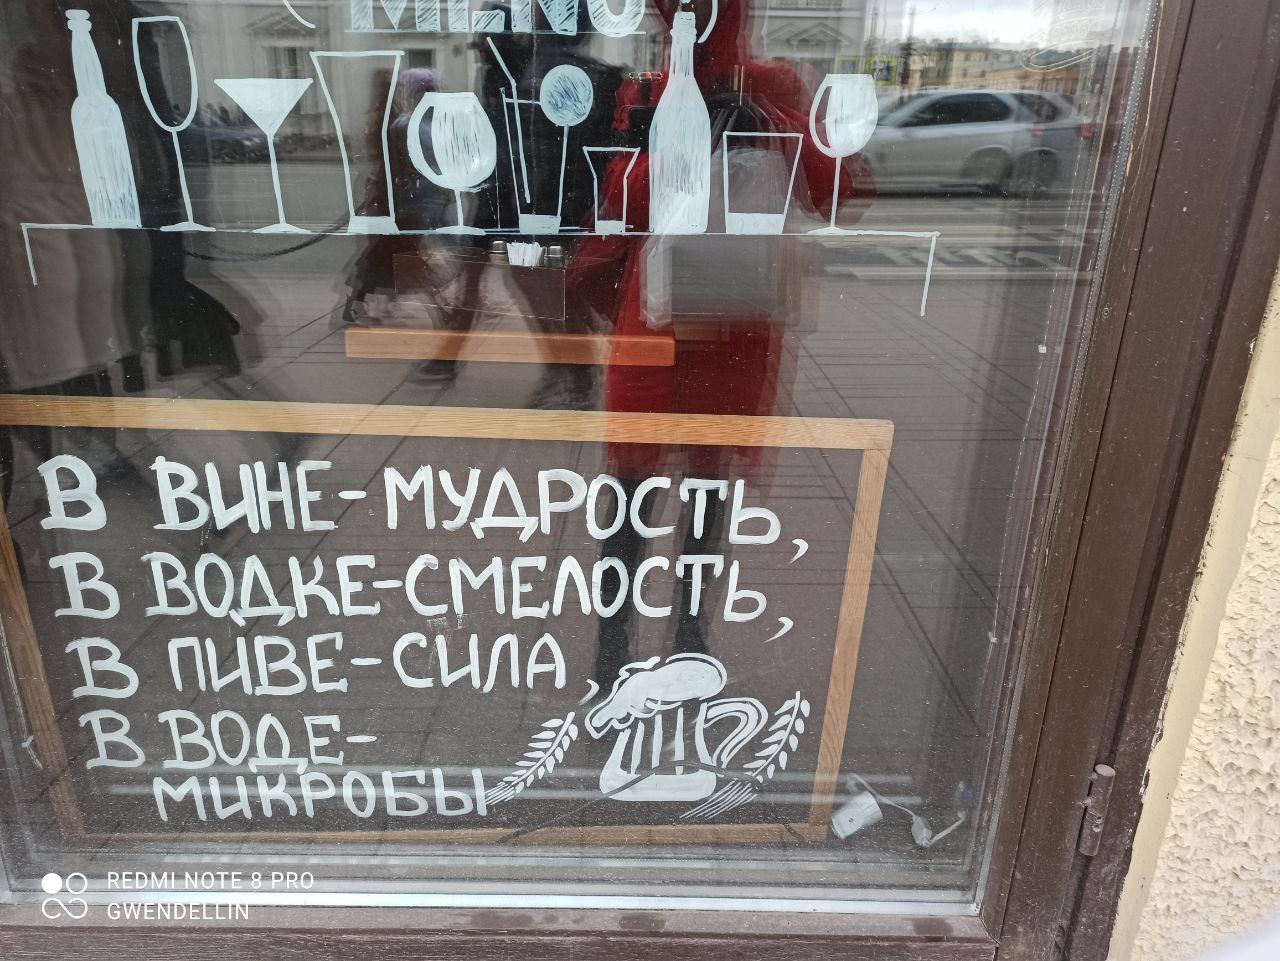 MENU
В ВИНЕ-МУДРОСТЬ,
В ВОДКЕ-СМЕЛОСТЬ,
В ПИВЕ-СИЛА,
В ВОДЕ-
МИКРОБЫ
REDMI NOTE 8 PRO
GWENDELLIN